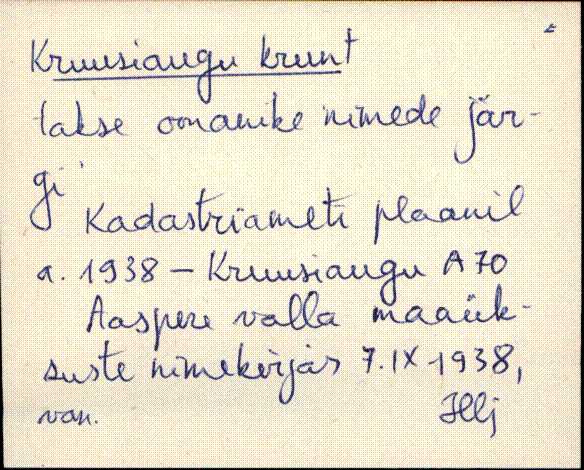 Kruusiaugu krunt
takse omanike nimede jär-
gi.
Kadastriameti plaanil
a. 1938 – Kruusiaugu A 70
Aaspere valla maaük-
suste nimekirjas 7.IX 1938,
van.